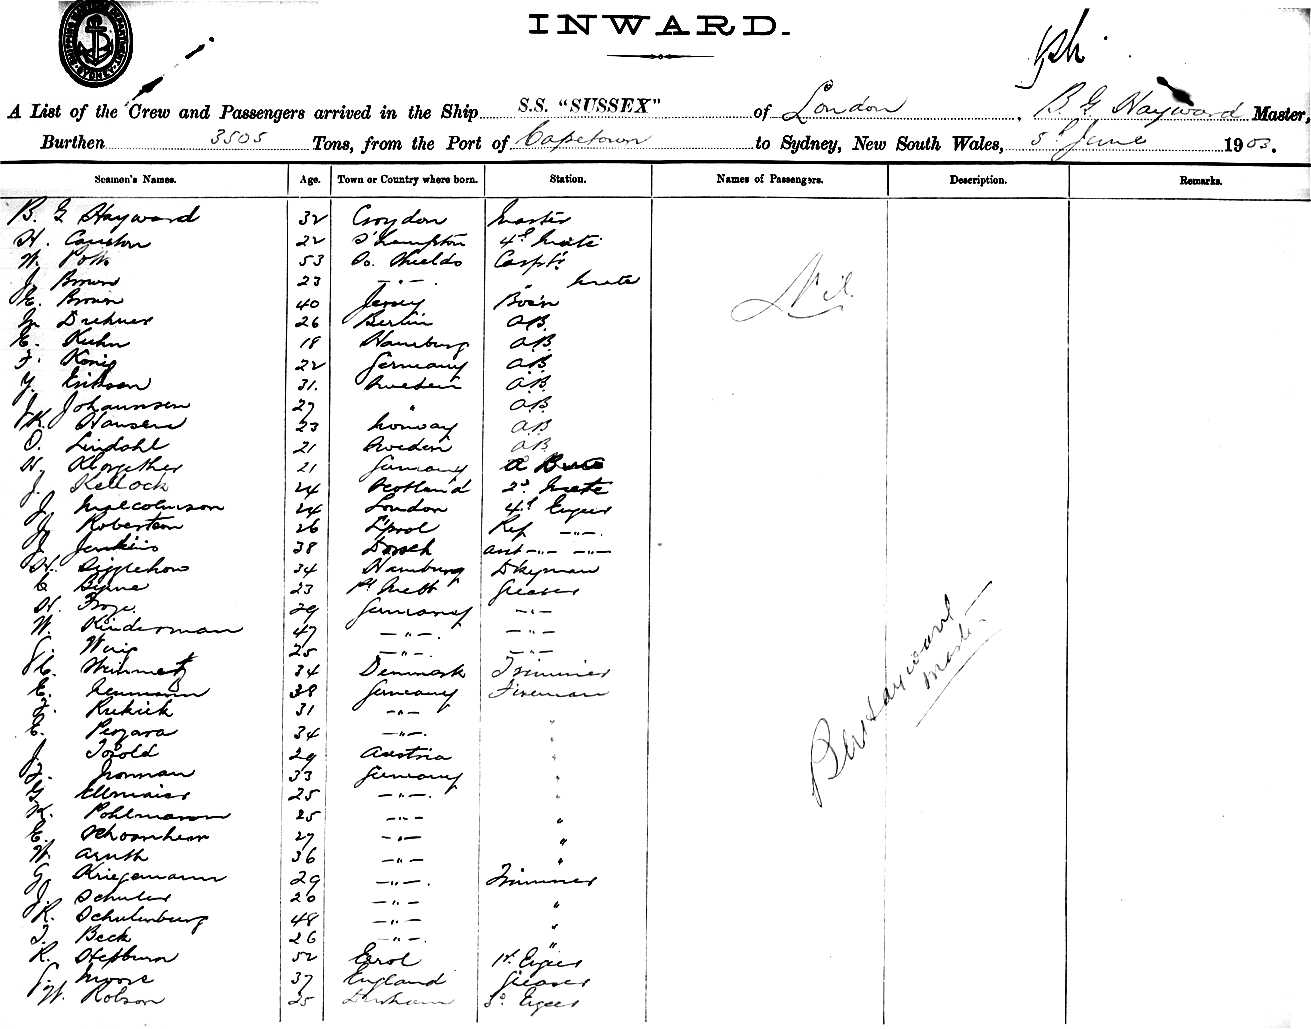 INWARD.
A List of the Crew and Passengers arrived in the Ship S.S. "SUSSEX" of London, B. G. Hayward Master,
Burthen 3505 Tons, from the Port of Capetown to Sydney, New South Wales, 5th June 1903.
Seamen's Names. Age. Town or Country where born. Station. Names of Passengers. Description. Remarks.
B. G Hayward 32 Croydon Master
H. 22 S'hampton 4th Mate
W. Potts 53 So. Shields Carptr
J. Brown 23 —"—. " Mate
E. Brown 40 Jersey Bos'n
Drehner 26 Berlin AB.
E. Kuhn 18 Hamburg AB.
F. König 22 Germany AB.
Y. Erikson 31. Sweden AB.
J. Johannsen 27 " AB.
K. Hansen 23 Norway AB.
O. Lindahl 21 Sweden AB.
H. 21 Germany
J. Kellock 24 Scotland 2d Mate
J. Malcolmson 24 London 4th Engeer
J. Robertson 26 L'pool Ref —"—.
J. Jenkins 38 —"— —"—
H. Digglehow 34 Hamburg Dkeyman
C Byrne 23 Greaser
H. 29 Germany —"—
W. Kinderman 47 —"—. —"—
25 —"—. —"—
34 Denmark Trimmer
E. Neumann 38 Germany Fireman
Rukick 31 —"— "
E. Pegara 34 —"—. "
J. Topold 29 Austria "
J. Jronman 33 Germany "
G. Ellmaier 25 —"—. "
K. Pohlmann 25 —"— "
E. Schoonheim 27 —"— "
W. Aruth 36 —"— "
G. Kriegsmann 29 —"—. Trimmer
J. Schuler 20 —"— "
R. Schulenburg 48 —"— "
J. Beck 26 —"—. "
R. Hepburn 52 Errol 1st Engeer
Moore 37 England Greaser
W. Robson 25 Durham 3d Engeer
Nil.
B G Hayward
Master